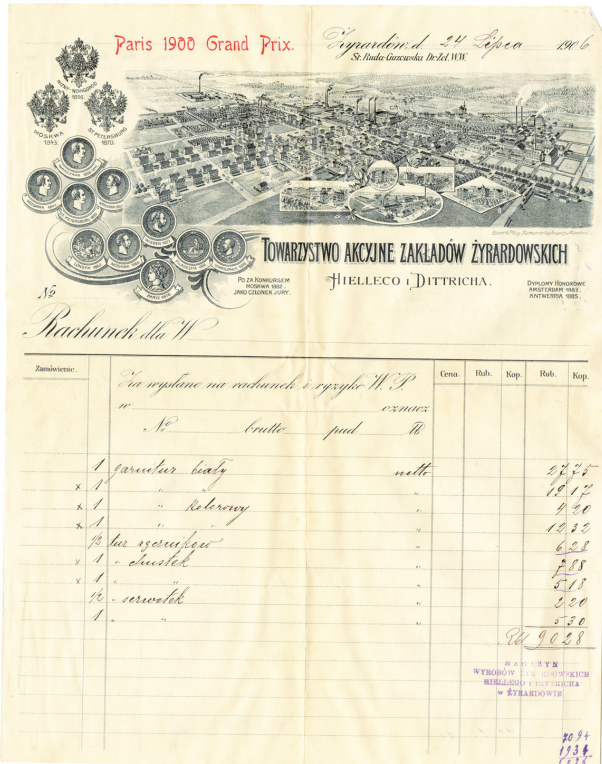 Paris 1900 Grand Prix.
Żyrardów, d. 24 Lipca 1906
St. Ruda-Guzowska Dr. Żel. W.W.
NIŻNY NOWGOROD
1896.
MOSKWA
1843.
ST PETERSBURG
1870.
PARIS 1878
TOWARZYSTWO AKCYJNE ZAKŁADÓW ŻYRARDOWSKICH
HIELLEGO i DITTRICHA.
POZA KONKURSEM
MOSKWA 1882.
JAKO CZŁONEK JURY.
DYPLOMY HONOROWE
AMSTERDAM 1883.
ANTWERPIA 1885.
№
Rachunek dla W
Zamówienie. Cena. Rub. Kop. Rub. Kop.
Za wysłane na rachunek i ryzyko W. P.
w oznacz
№ brutto pud ℔.
1 garnitur biały netto 27 75
x 1 " " " 19 17
x 1 " kolorowy " 4 20
x 1 " " " 12 32
1/2 tuz ręczników " 6 28
x 1 " chustek " 7 88
x 1 " " " 5 18
1/2 " serwetek " 2 20
1 " " " 5 30
Rb 90 28
MAGAZYN
WYROBÓW ŻYRARDOWSKICH
HIELLEGO I DITTRICHA
w ŻYRARDOWIE
70 94
19 34